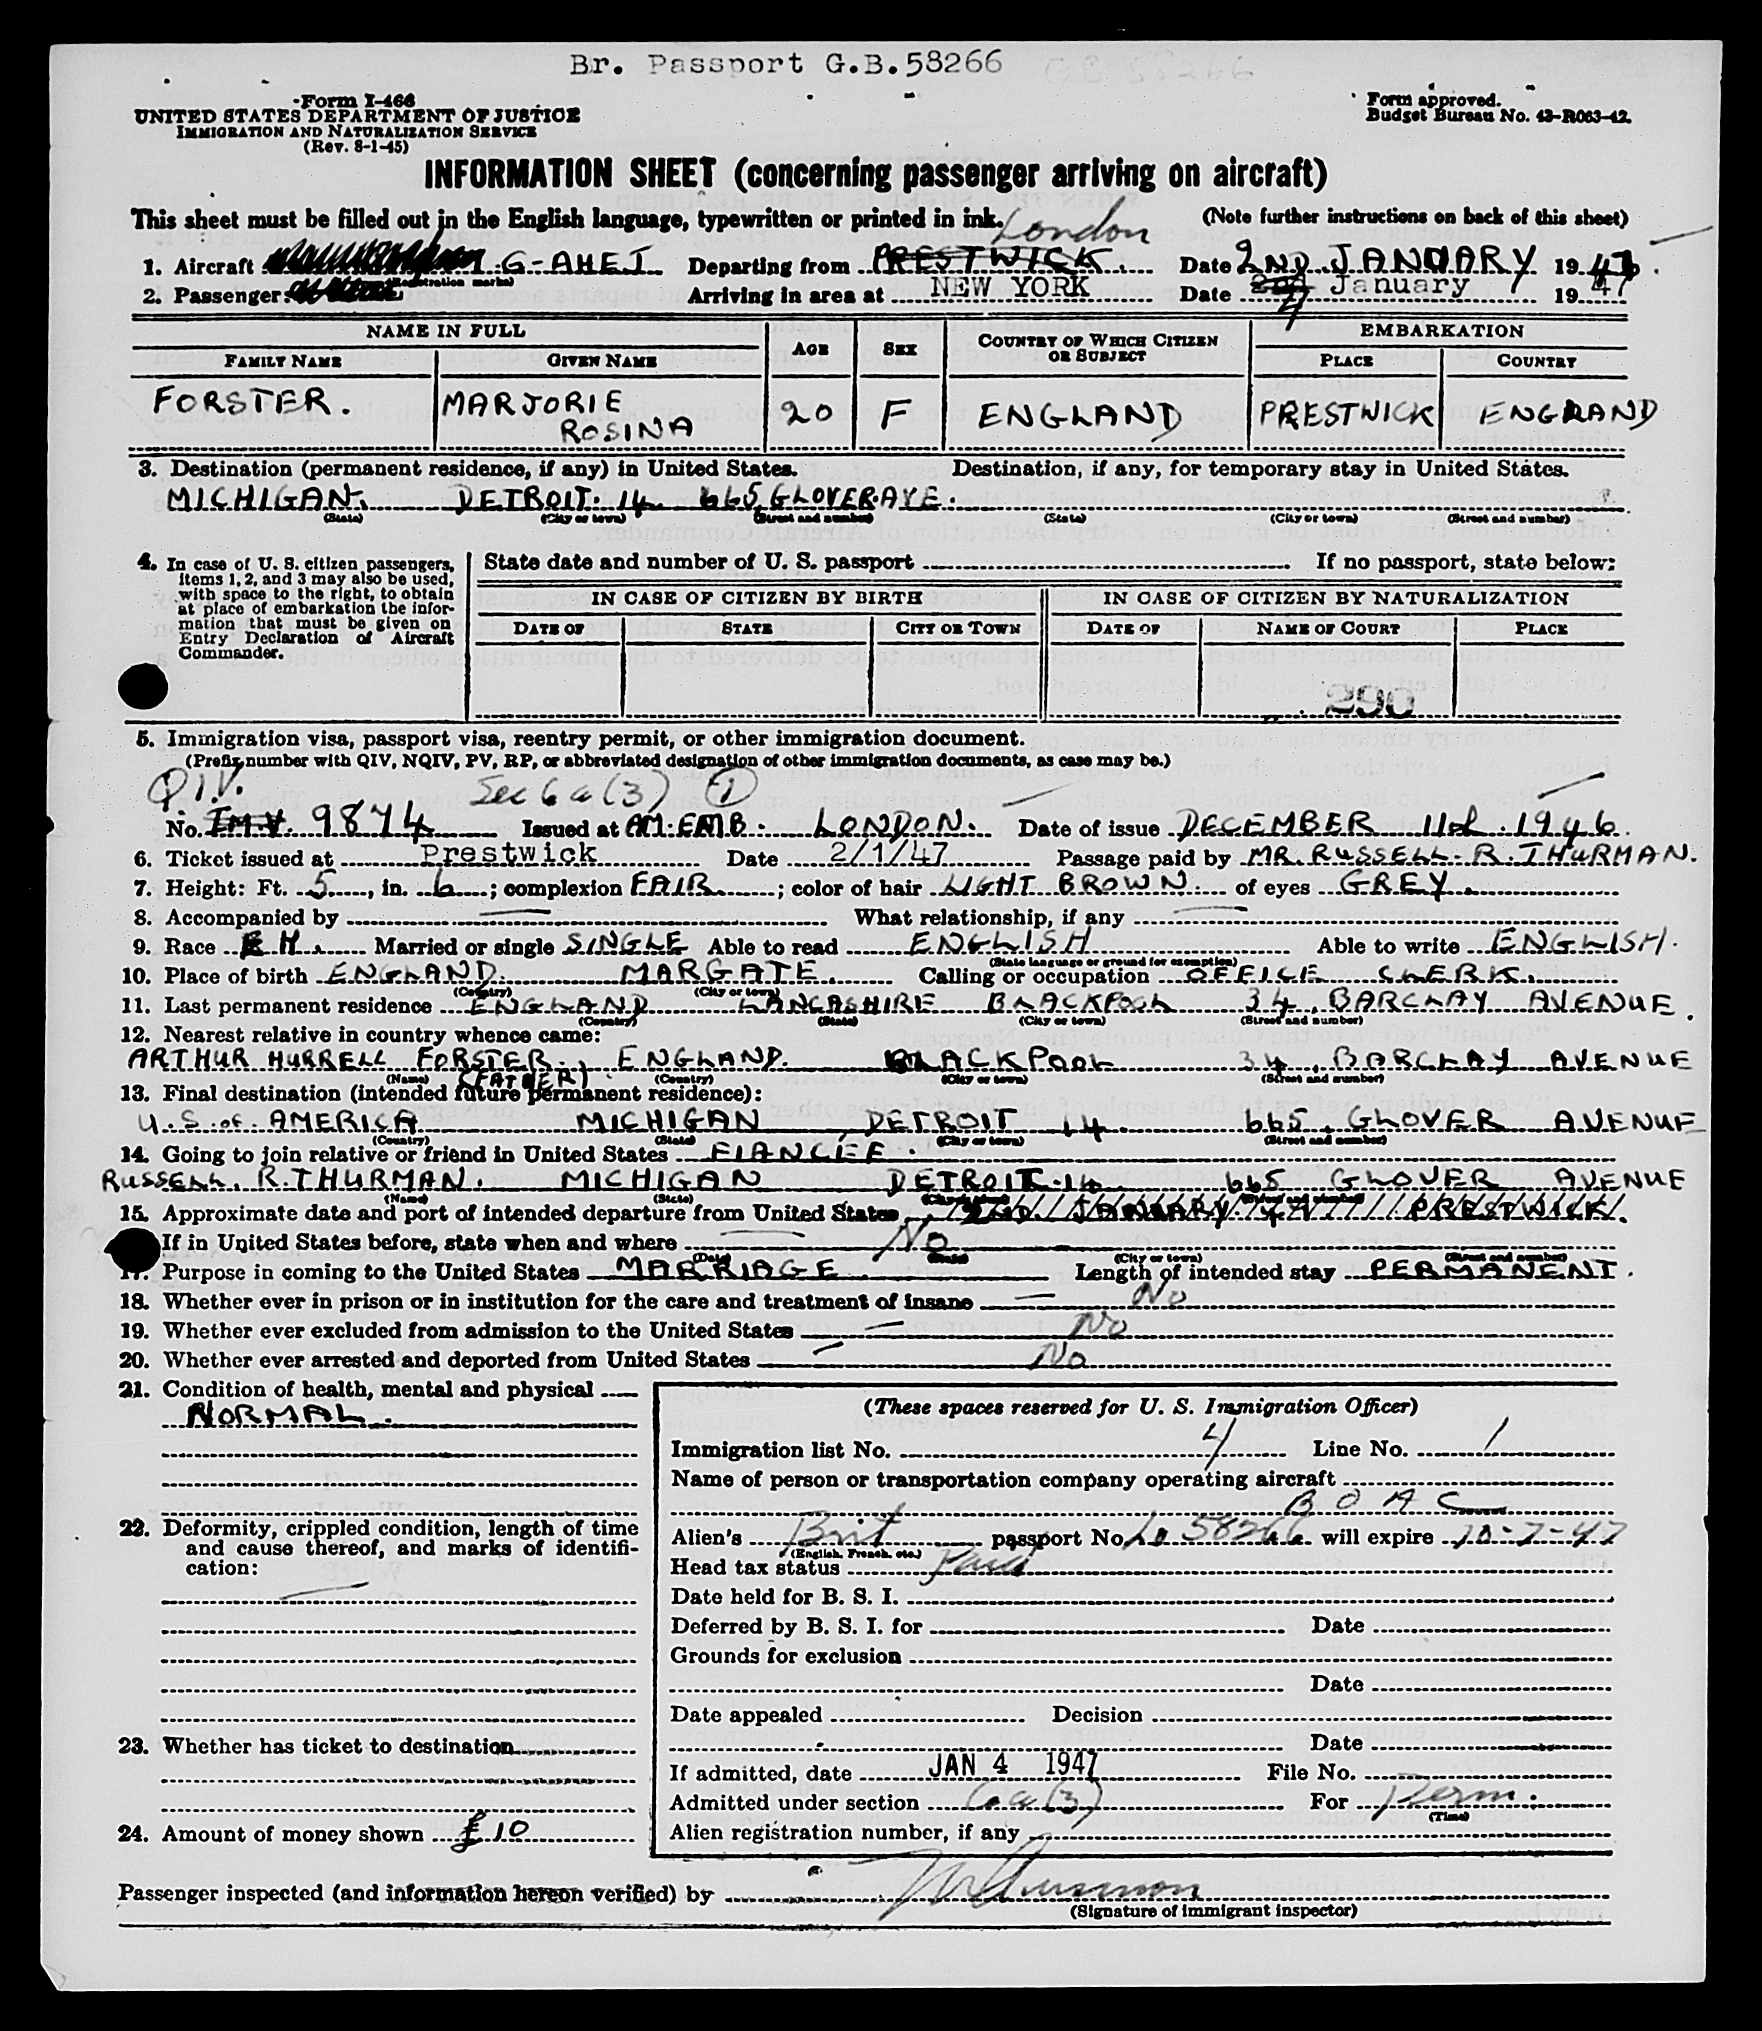 Br. Passport G.B.58266
Form I-466
UNITED STATES DEPARTMENT OF JUSTICE
IMMIGRATION AND NATURALIZATION SERVICE
(Rev. 8-1-45)
Form approved.
Budget Bureau No. 43-R063-42.
INFORMATION SHEET (concerning passenger arriving on aircraft)
This sheet must be filled out in the English language, typewritten or printed in ink. (Note further instructions on back of this sheet)
London
1. Aircraft G-AHEJ Departing from PRESTWICK. Date 2ND JANUARY 1947.
(Registration marks)
2. Passenger: Arriving in area at NEW YORK Date 4 January 1947
NAME IN FULL AGE SEX COUNTRY OF WHICH CITIZEN OR SUBJECT EMBARKATION
FAMILY NAME GIVEN NAME PLACE COUNTRY
FORSTER. MARJORIE ROSINA 20 F ENGLAND PRESTWICK ENGLAND
3. Destination (permanent residence, if any) in United States. Destination, if any, for temporary stay in United States.
MICHIGAN. DETROIT. 14 665, GLOVER. AVE.
(State) (City or town) (Street and number) (State) (City or town) (Street and number)
4. In case of U. S. citizen passengers, items 1, 2, and 3 may also be used, with space to the right, to obtain at place of embarkation the information that must be given on Entry Declaration of Aircraft Commander.
State date and number of U. S. passport If no passport, state below:
IN CASE OF CITIZEN BY BIRTH IN CASE OF CITIZEN BY NATURALIZATION
DATE OF STATE CITY OR TOWN DATE OF NAME OF COURT PLACE
290
5. Immigration visa, passport visa, reentry permit, or other immigration document.
(Prefix number with QIV, NQIV, PV, RP, or abbreviated designation of other immigration documents, as case may be.)
Q.I.V. Sec 6 a (3) 1
No. IM.V. 9874 Issued at AM. EMB. LONDON. Date of issue DECEMBER 11th. 1946.
6. Ticket issued at Prestwick Date 2/1/47 Passage paid by MR. RUSSELL. R. THURMAN.
7. Height: Ft. 5, in. 6; complexion FAIR; color of hair LIGHT BROWN of eyes GREY.
8. Accompanied by What relationship, if any
9. Race Married or single SINGLE Able to read ENGLISH Able to write ENGLISH.
(State language or ground for exemption)
10. Place of birth ENGLAND. MARGATE. Calling or occupation OFFICE CLERK.
(Country) (City or town)
11. Last permanent residence ENGLAND LANCASHIRE BLACKPOOL 34, BARCLAY AVENUE.
(Country) (State) (City or town) (Street and number)
12. Nearest relative in country whence came:
ARTHUR HURRELL FORSTER. ENGLAND. BLACKPOOL 34, BARCLAY AVENUE
(Name) (FATHER) (Country) (City or town) (Street and number)
13. Final destination (intended future permanent residence):
U.S. of AMERICA MICHIGAN DETROIT 14. 665, GLOVER AVENUE
(Country) (State) (City or town) (Street and number)
14. Going to join relative or friend in United States FIANCÉE.
RUSSELL. R. THURMAN. MICHIGAN DETROIT. 14 665 GLOVER AVENUE
(Name) (State) (City or town) (Street and number)
15. Approximate date and port of intended departure from United States 2nd JANUARY 47 PRESTWICK.
If in United States before, state when and where No
(Date) (State) (City or town) (Street and number)
17. Purpose in coming to the United States MARRIAGE Length of intended stay PERMANENT.
18. Whether ever in prison or in institution for the care and treatment of insane No
19. Whether ever excluded from admission to the United States No
20. Whether ever arrested and deported from United States No
21. Condition of health, mental and physical
NORMAL.
22. Deformity, crippled condition, length of time and cause thereof, and marks of identification:
23. Whether has ticket to destination
24. Amount of money shown £10
(These spaces reserved for U. S. Immigration Officer)
Immigration list No. 4 Line No. 1
Name of person or transportation company operating aircraft
B O A C
Alien's Brit passport No. 58266 will expire 10-7-47
(English, French, etc.)
Head tax status Paid
Date held for B. S. I.
Deferred by B. S. I. for Date
Grounds for exclusion
Date
Date appealed Decision
Date
If admitted, date JAN 4 1947 File No.
Admitted under section 6 a (3) For Perm.
(Time)
Alien registration number, if any
Passenger inspected (and information hereon verified) by
(Signature of immigrant inspector)